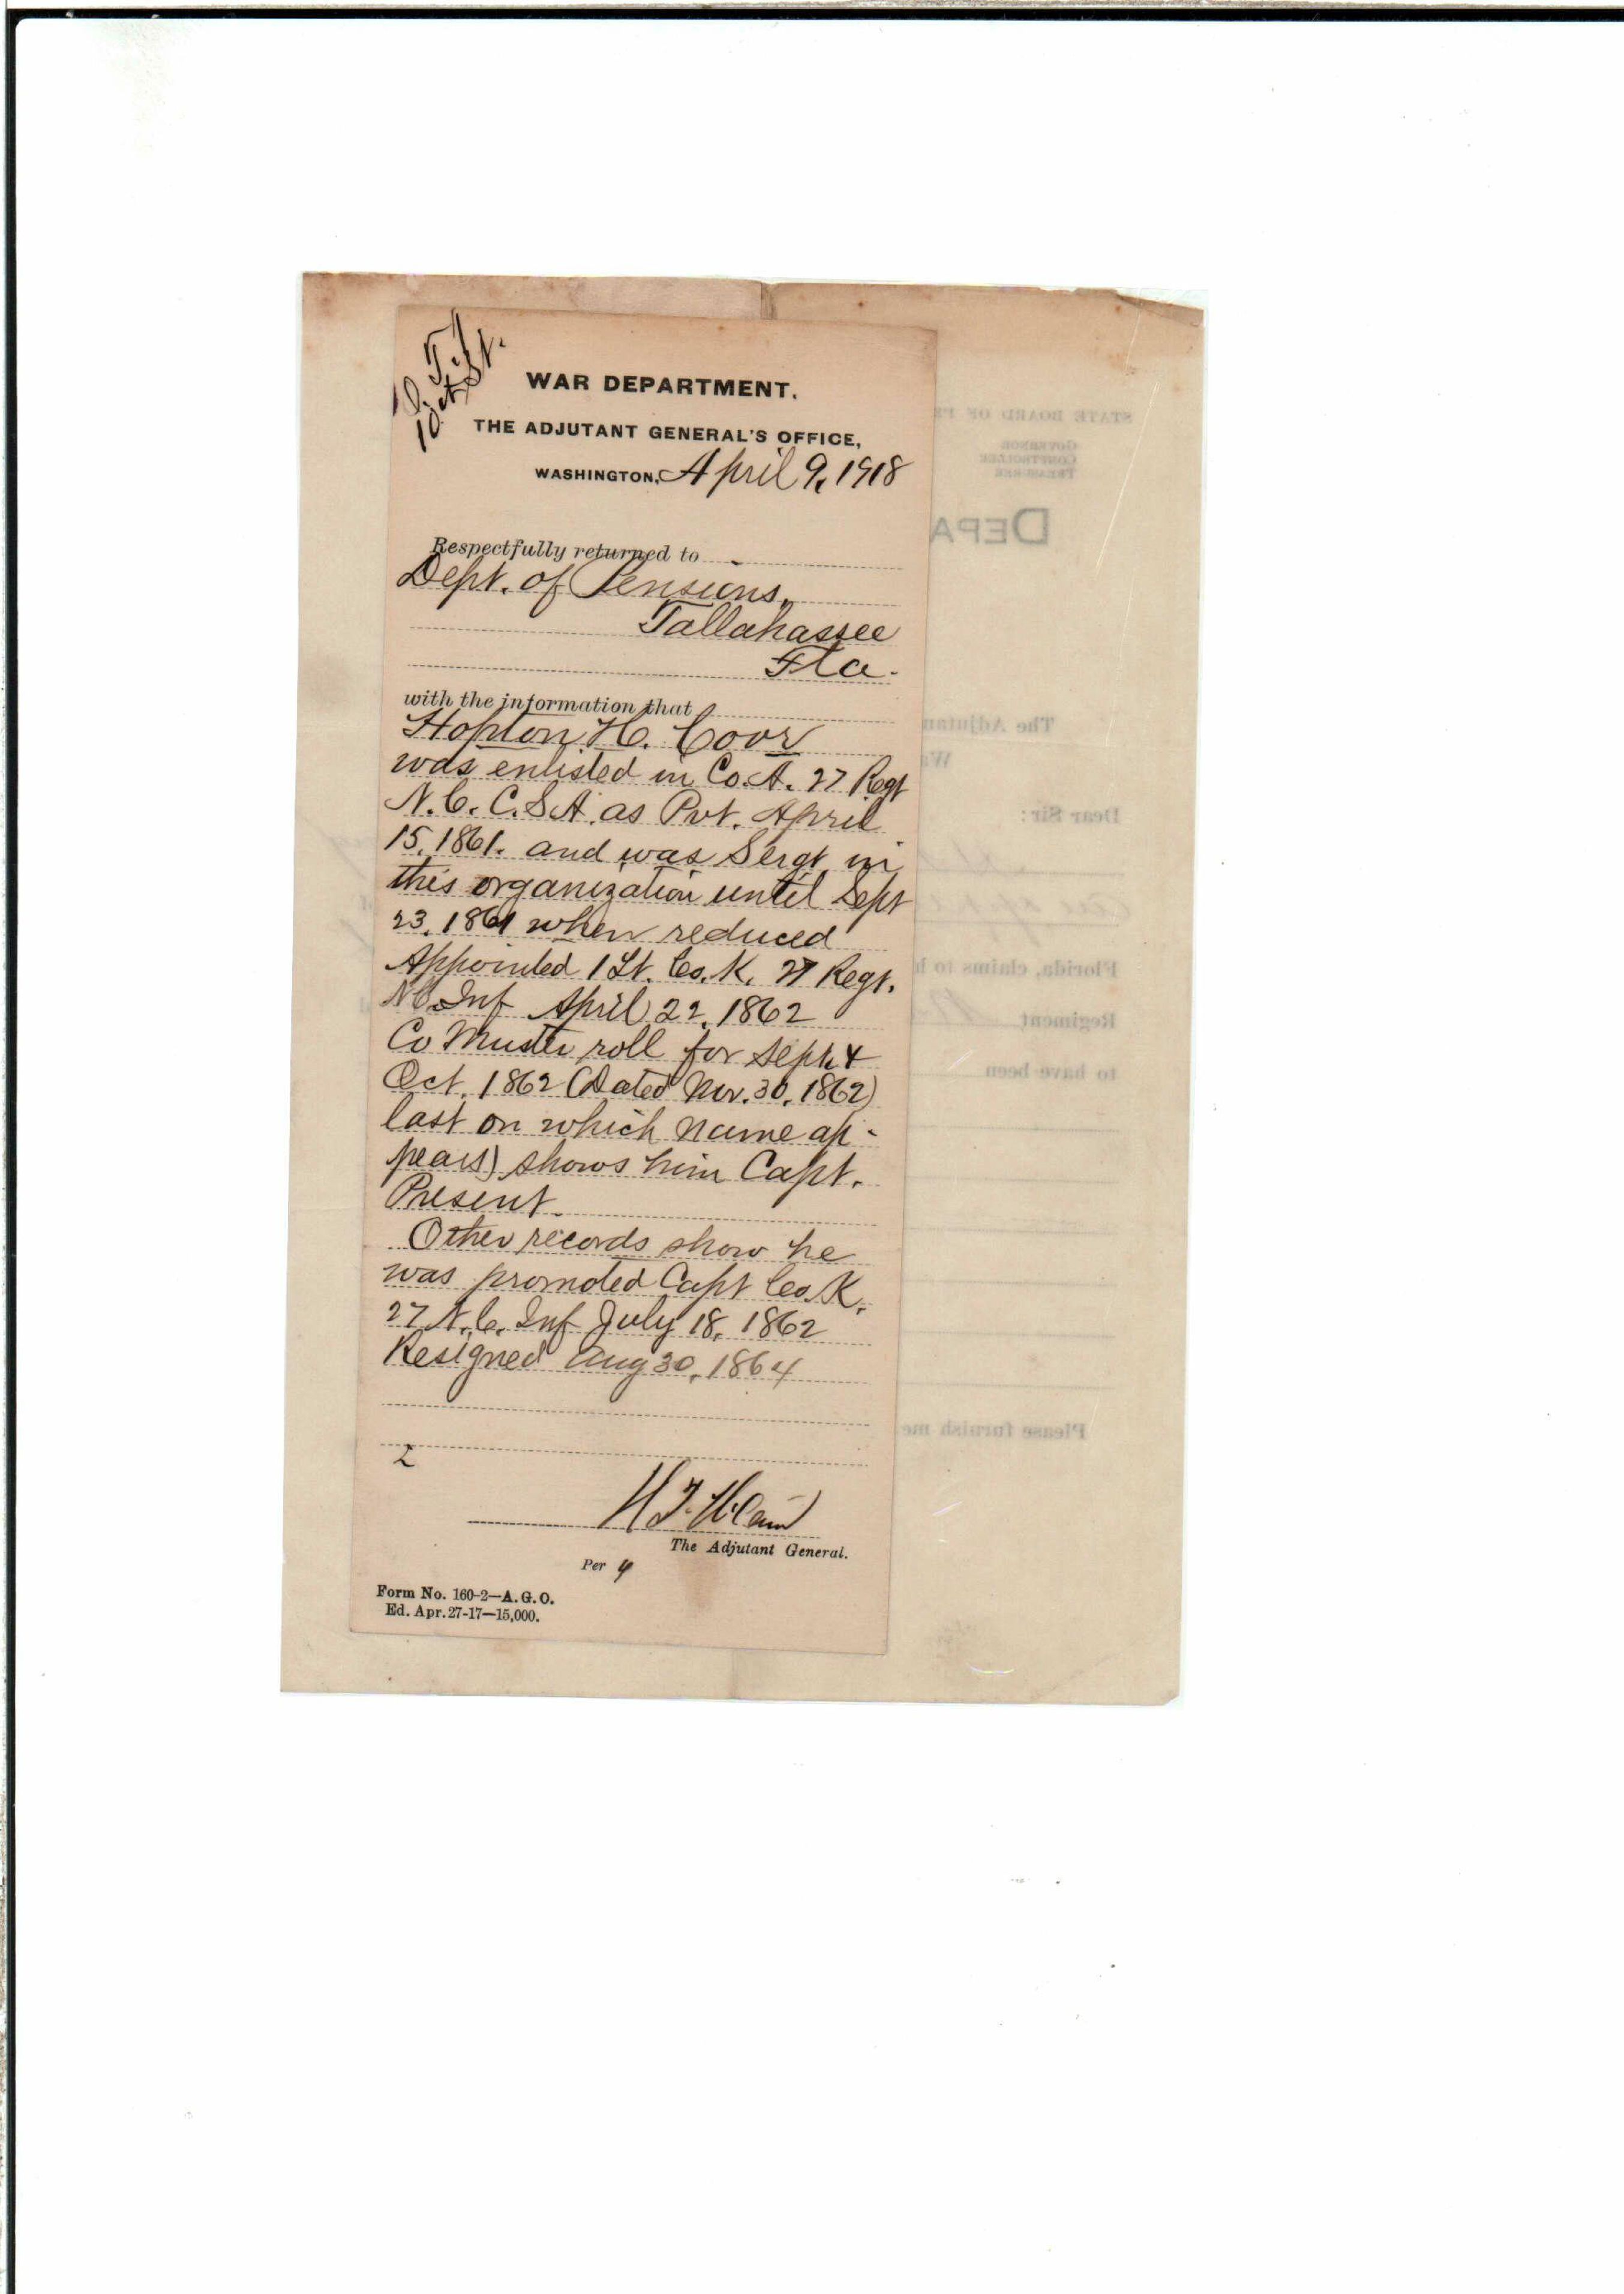 WAR DEPARTMENT.
THE ADJUTANT GENERAL'S OFFICE,
WASHINGTON, April 9, 1918
Respectfully returned to
Dept. of Pensions,
Tallahassee
Fla.
with the information that
Hopton H. Coor
was enlisted in Co. A. 27 Regt
N.C. C.S.A. as Pvt. April
15, 1861. and was Sergt in
this organization until Sept
23, 1861 when reduced
Appointed 1 Lt. Co. K, 27 Regt.
N.C. Inf April 22, 1862
Co Muster roll for Sept. &
Oct. 1862 (Dated Nov. 30, 1862)
last on which name ap-
pears) shows him Capt.
Present.
Other records show he
was promoted Capt Co. K,
27 N.C. Inf July 18, 1862
Resigned Aug 30, 1864
The Adjutant General.
Per
Form No. 160-2—A.G.O.
Ed. Apr. 27-17—15,000.
STATE BOARD OF
GOVERNOR
COMPTROLLER
TREASURER
DEPA
The Adjutan
Wa
Dear Sir:
Florida, claims to h
Regiment
to have been
Please furnish me